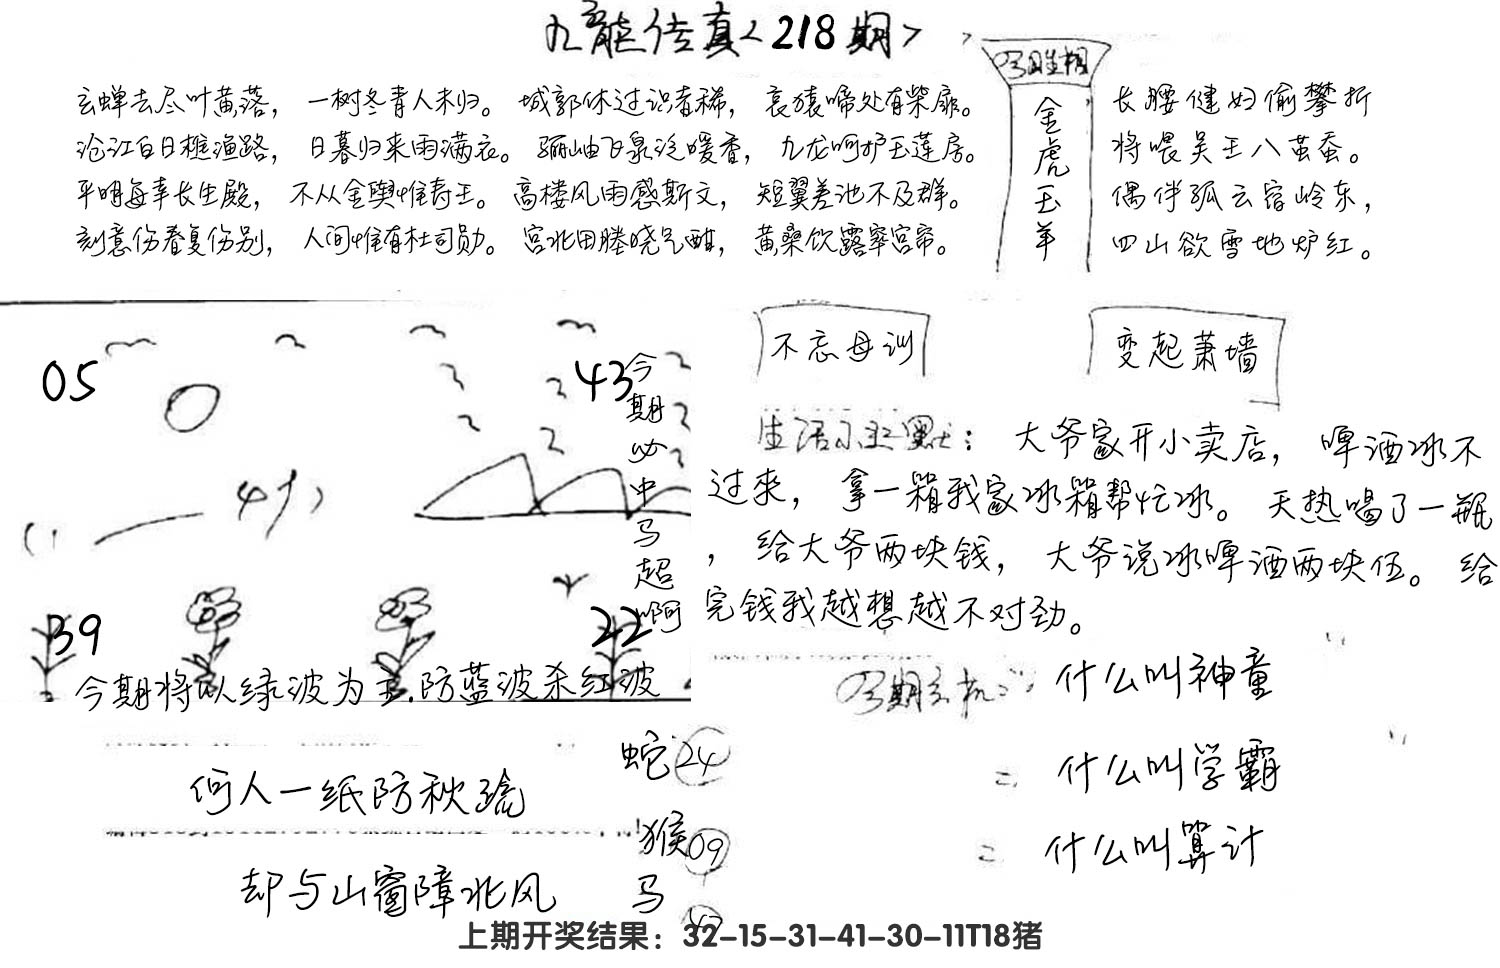 九龙传真<218期>
玄蝉去尽叶黄落，一树冬青人未归。城郭休过识者稀，哀猿啼处有柴扉。
沧江白日樵渔路，日暮归来雨满衣。骊岫飞泉泛暖香，九龙呵护玉莲房。
平明每幸长生殿，不从金舆惟寿王。高楼风雨感斯文，短翼差池不及群。
刻意伤春复伤别，人间惟有杜司勋。宫北田塍晓气酣，黄桑饮露窣宫帘。
金虎玉羊
长腰健妇偷攀折
将喂吴王八茧蚕。
偶伴孤云宿岭东，
四山欲雪地炉红。
05
43
39
22
今期必中马超啊
今期将以绿波为主.防蓝波杀红波
不忘母训
变起萧墙
生活小幽默：大爷家开小卖店，啤酒冰不
过来，拿一箱我家冰箱帮忙冰。天热喝了一瓶
，给大爷两块钱，大爷说冰啤酒两块伍。给
完钱我越想越不对劲。
什么叫神童
什么叫学霸
什么叫算计
何人一纸防秋疏
却与山窗障北风
蛇24
猴09
马
上期开奖结果：32-15-31-41-30-11T18猪